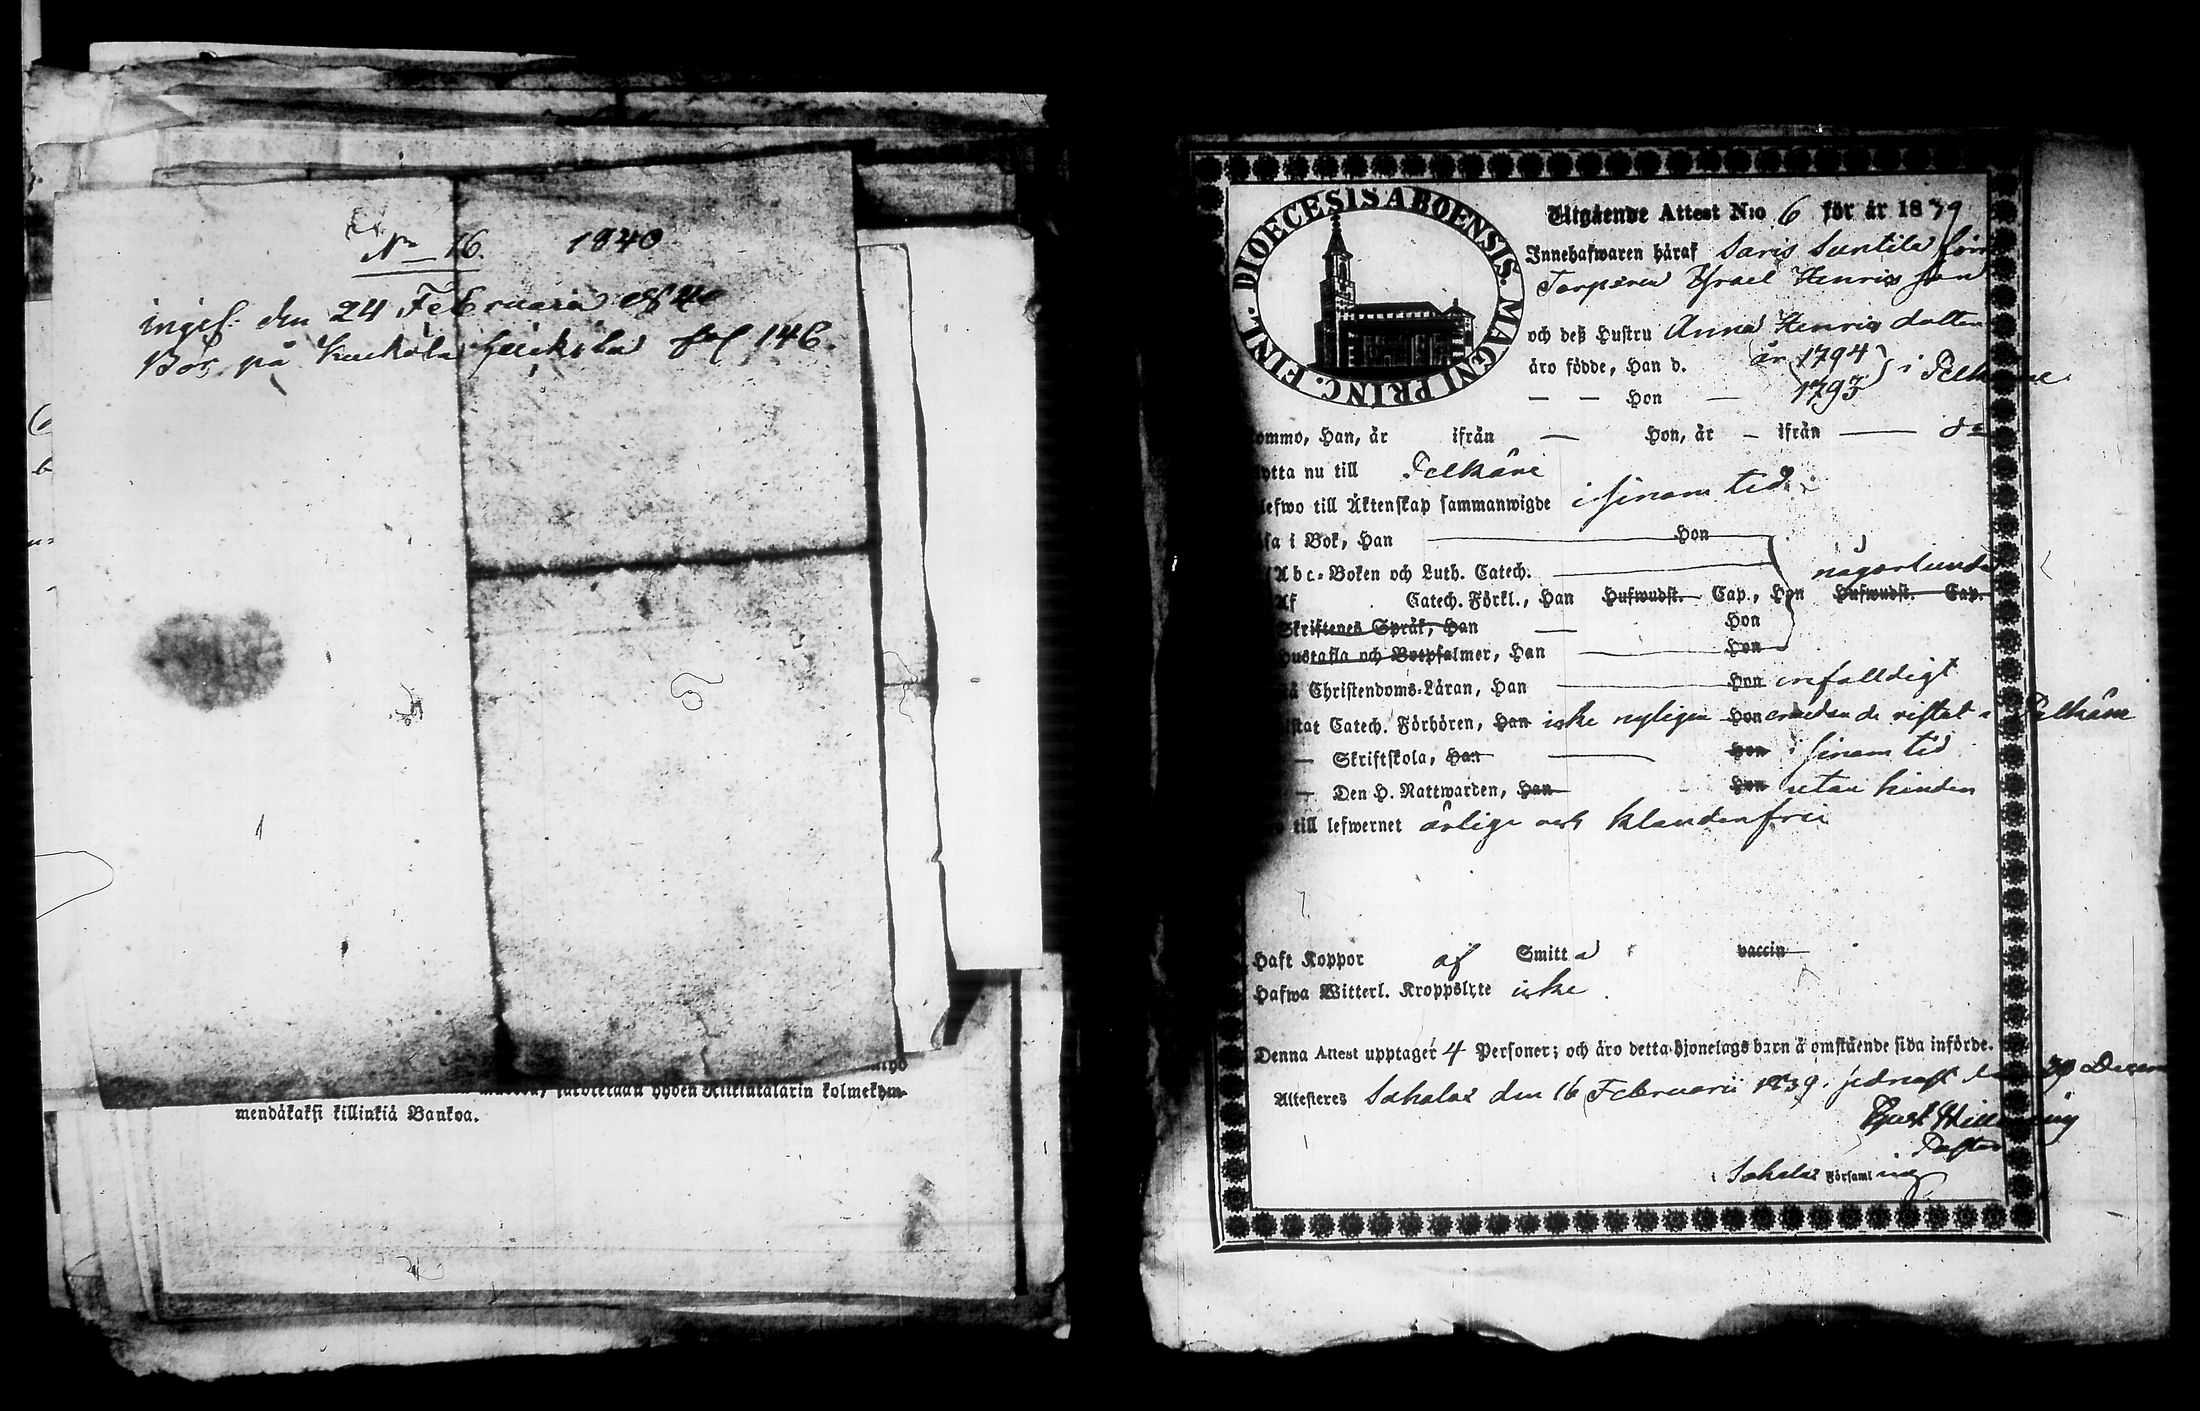 No 16. 1840
ingif. den 24 Februarii 1840
Bor på fol 146.
kolmekym-
mendäkaksi killinkiä Bankoa.
DIOECESIS ABOENSIS. MAGNI PRINC. FINL.
Utgående Attest N:o 6 för år 1839
Innehafwaren häraf Saris Suntila
Torparen Israel Henrics son
och deß Hustru Anna Henrics dotter
äro födde, Han d. år 1794 i Pelkäne
— — Hon — 1793
ommo, Han, år ifrån — Hon, år — ifrån —
ytta nu till Pelkäne
lefwo till Äktenskap sammanwigde i sinom tid
äsa i Bok, Han — Hon
Abc-Boken och Luth. Catech. — någorlunda
Af Catech. Förkl., Han Hufwudst. Cap., Hon Hufwudst. Cap.
Skriftenes Språk, Han — Hon
Hustafla och Botpsalmer, Han — Hon
Christendoms-Läran, Han — Hon enfalldigt
istat Catech. Förhören, Han icke nyligen Hon emedan de vistat i Pelkäne
— Skriftskola, Han — Hon i sinom tid
— Den H. Nattwarden, Han Hon utan hinder
till lefwernet ärlige och klanderfrie
Haft Koppor af Smitta vaccin
Hafwa Witterl. Kroppslyte icke
Denna Attest upptager 4 Personer; och äro detta hjonelags barn å omstående sida införde.
Attesteres Sahalax den 16 Februarii 1839. jednaft den 30 Decem
Pastor
i Sahalax Församling